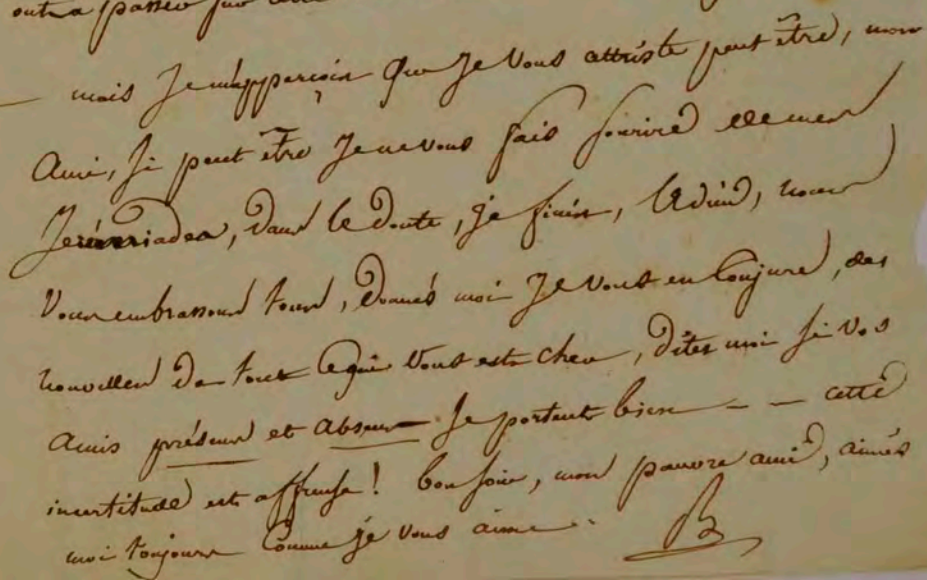 ont a passer sur
— mais Je m'apperçois que Je vous attriste peut être, mon
Ami, si peut être Je ne vous fais sourire de mes
Jérémiades, dans le doute, je finis, Adieu, nous
vous embrassons tous, donnés moi Je vous en Conjure, des
nouvelles de tout ce qui vous est cher, dites moi si vos
amis présens et absens se portent bien — — cette
incertitude est affreuse ! bon soir, mon pauvre ami, aimés
moi toujours Comme je vous aime.
B